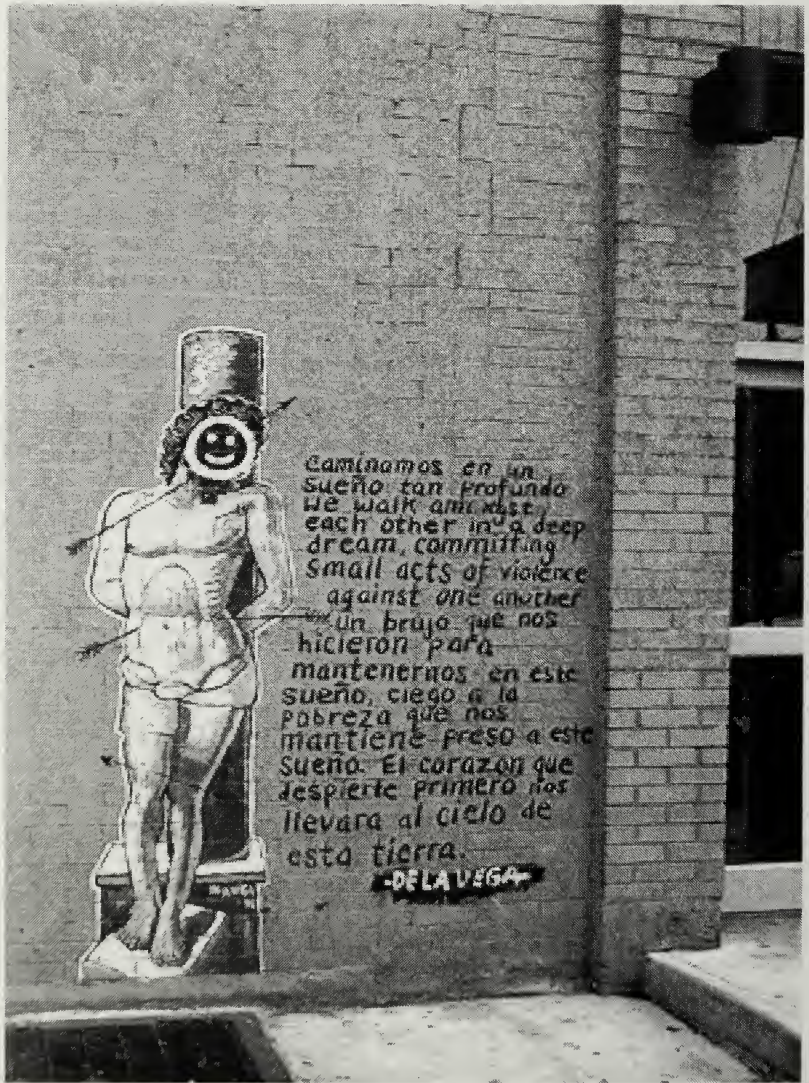 Caminamos en un
sueño tan profundo
we walk amixst
each other in a deep
dream, committing
small acts of violence
against one another
un brujo que nos
hicieron para
mantenernos en este
sueño, ciego a la
pobreza que nos
mantiene preso a este
sueño. El corazon que
despierte primero nos
llevara al cielo de
esta tierra.
-DE LA VEGA-